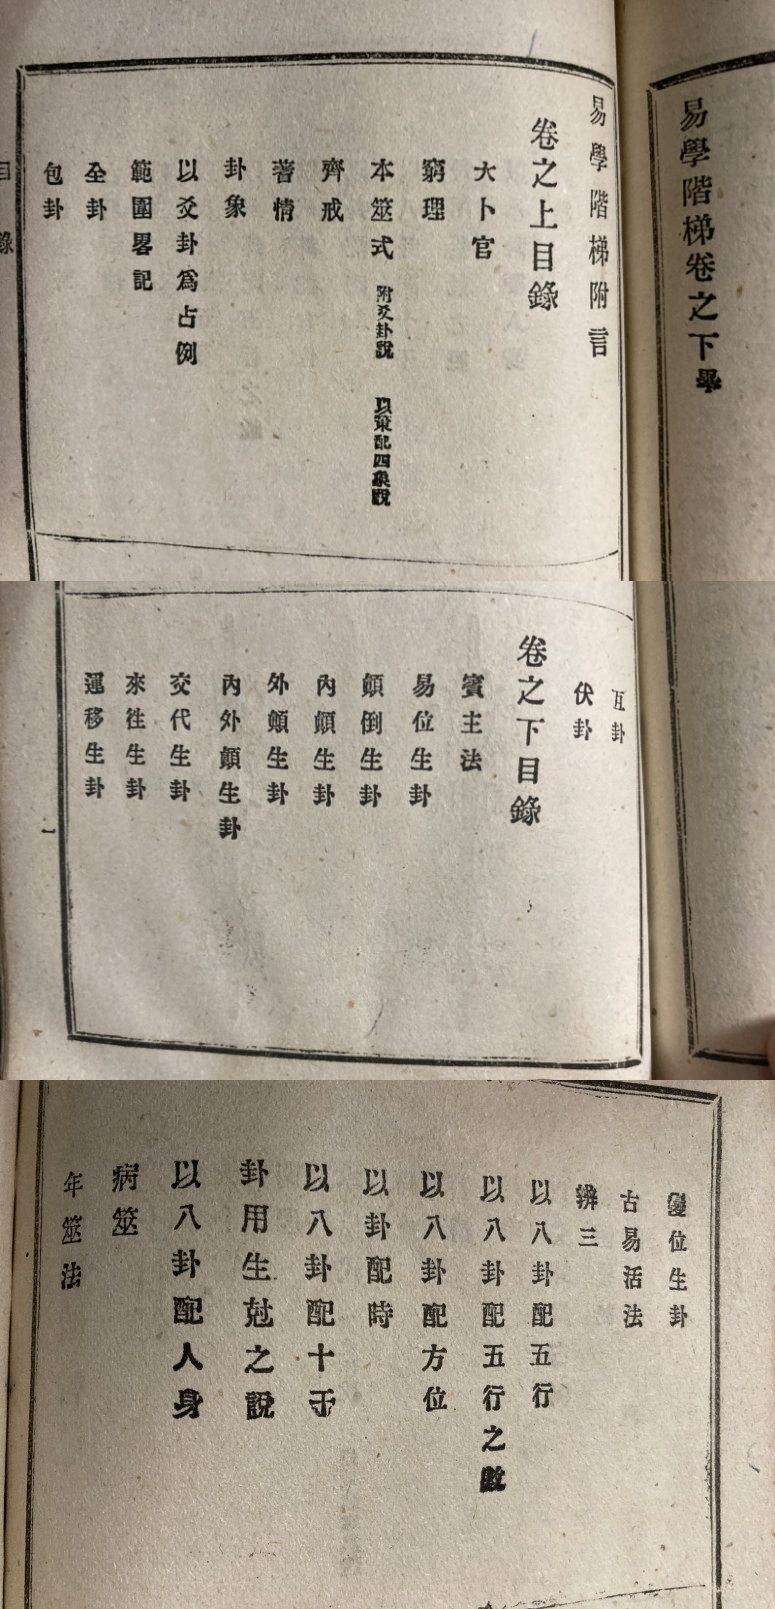 易學階梯卷之下畢
易學階梯附言
卷之上目錄
大卜官
窮理
本筮式 附爻卦說 以策配四象說
齊戒
蓍情
卦象
以爻卦爲占例
範圍畧記
全卦
包卦
目錄
互卦
伏卦
卷之下目錄
賓主法
易位生卦
顛倒生卦
內顛生卦
外顛生卦
內外顛生卦
交代生卦
來往生卦
運移生卦
一
變位生卦
古易活法
辨三
以八卦配五行
以八卦配五行之數
以八卦配方位
以卦配時
以八卦配十干
卦用生尅之說
以八卦配人身
病筮
年筮法